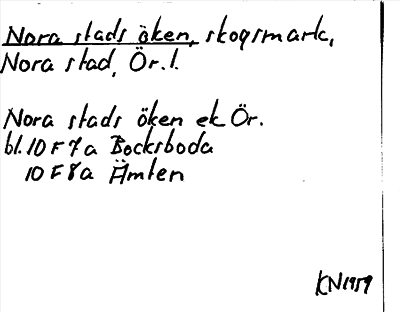 Nora stads öken, skogsmark,
Nora stad, Ör. l.
Nora stads öken ek Ör.
bl. 10 F 7 a Bocksboda
10 F 8 a Ämten
KN 1959